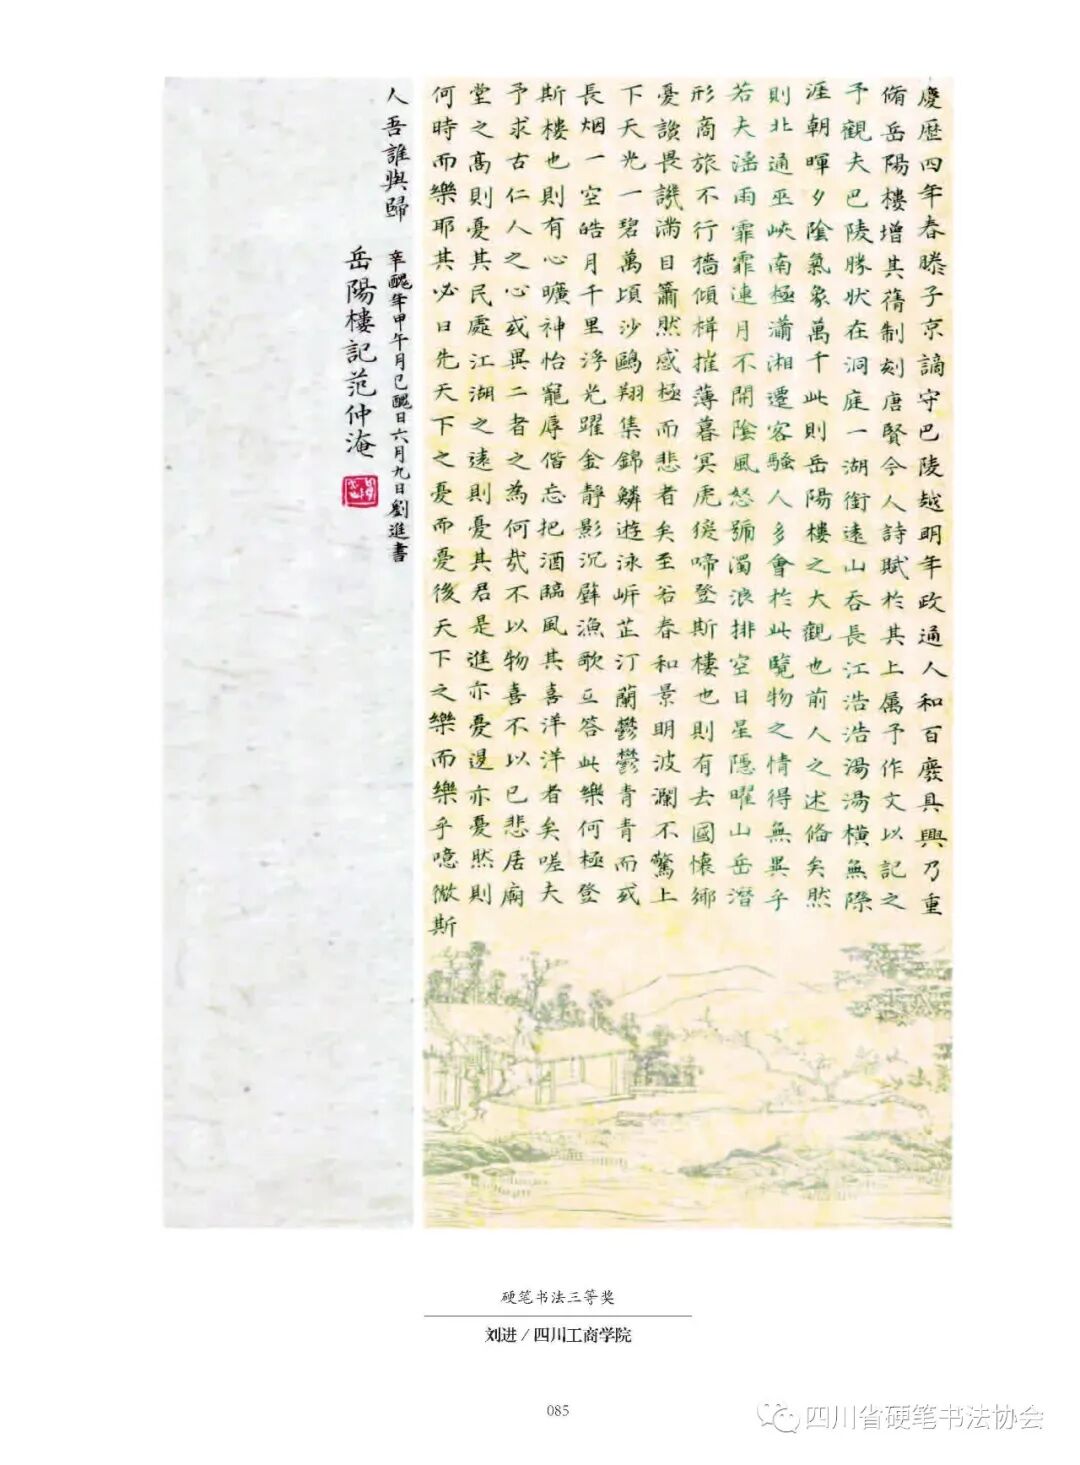 慶歷四年春滕子京謫守巴陵越明年政通人和百廢具興乃重
脩岳陽樓增其舊制刻唐賢今人詩賦於其上属予作文以記之
予觀夫巴陵勝狀在洞庭一湖銜遠山吞長江浩浩湯湯橫無際
涯朝暉夕陰氣象萬千此則岳陽樓之大觀也前人之述俻矣然
則北通巫峽南極瀟湘遷客騷人多會於此覽物之情得無異乎
若夫淫雨霏霏連月不開陰風怒號濁浪排空日星隱曜山岳潛
形商旅不行檣傾楫摧薄暮冥虎猨啼登斯樓也則有去國懷鄉
憂讒畏譏滿目蕭然感極而悲者矣至若春和景明波瀾不驚上
下天光一碧萬頃沙鷗翔集錦鱗遊泳岸芷汀蘭鬱鬱青青而或
長烟一空皓月千里浮光躍金靜影沉壁漁歌互答此樂何極登
斯樓也則有心曠神怡寵辱偕忘把酒臨風其喜洋洋者矣嗟夫
予求古仁人之心或異二者之為何哉不以物喜不以己悲居廟
堂之高則憂其民處江湖之遠則憂其君是進亦憂退亦憂然則
何時而樂耶其必曰先天下之憂而憂後天下之樂而樂乎噫微斯
人吾誰與歸
辛醜年甲午月己醜日六月九日劉進書
岳陽樓記范仲淹
硬笔书法三等奖
刘进/四川工商学院
085
四川省硬笔书法协会